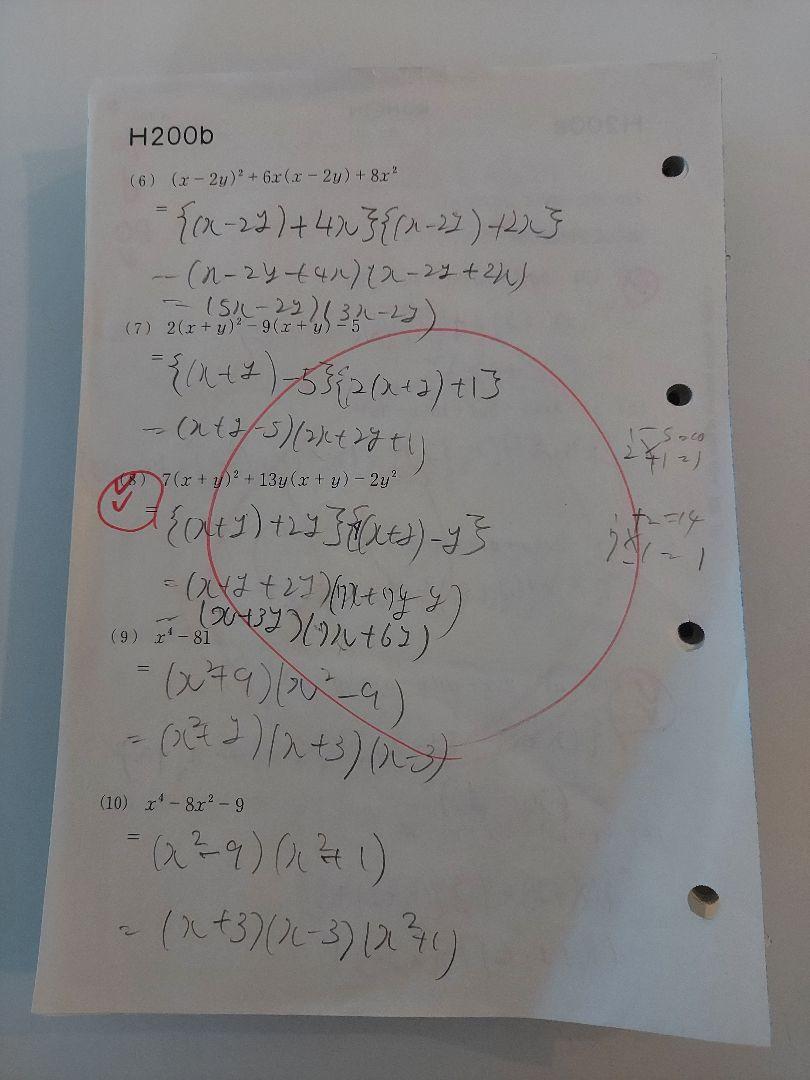 H200b
(6) (x − 2y)² + 6x(x − 2y) + 8x²
= {(x−2y)+4x}{(x−2y)+2x}
= (x−2y+4x)(x−2y+2x)
= (5x−2y)(3x−2y)
(7) 2(x + y)² − 9(x + y) − 5
= {(x+y)−5}{2(x+y)+1}
= (x+y−5)(2x+2y+1)
1 −5=10
2 +1=1
(8) 7(x + y)² + 13y(x + y) − 2y²
= {(x+y)+2y}{7(x+y)−y}
1 +2=14
7 −1=1
= (x+y+2y)(7x+7y−y)
= (x+3y)(7x+6y)
(9) x⁴ − 81
= (x²+9)(x²−9)
= (x²+9)(x+3)(x−3)
(10) x⁴ − 8x² − 9
= (x²−9)(x²+1)
= (x+3)(x−3)(x²+1)